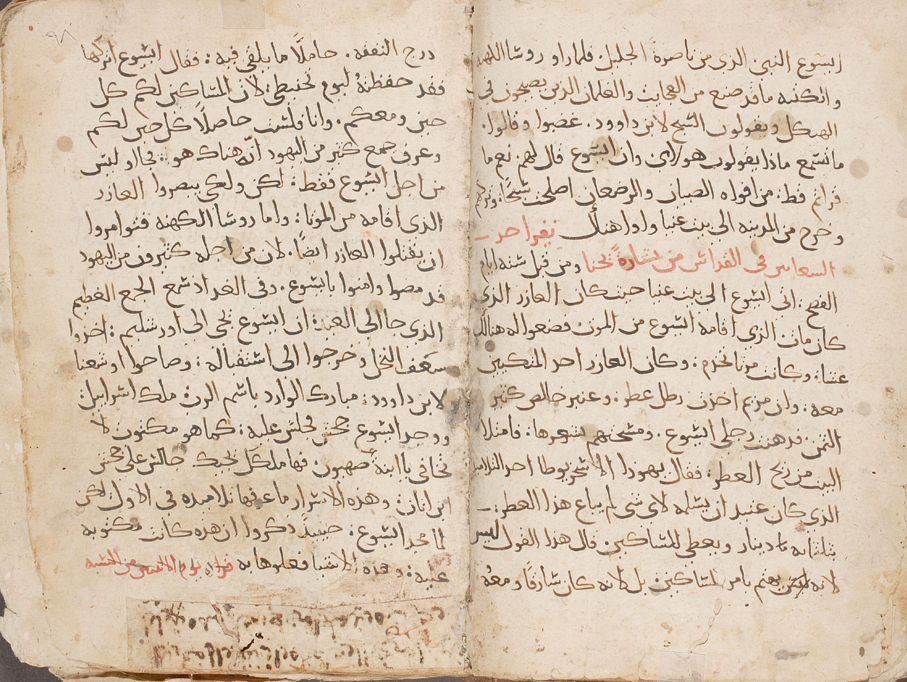 ايسوع النبي الذي من ناصرة الجليل فلما راو روسا الكهنه
والكتبه ما قد صنع من العجايب والغلمان الذين يصيحون في
الهيكل ويقولون التسبح لابن داوود. غضبوا وقالوا.
ما تسمع ماذا يقولون هولاي وان ايسوع قال لهم نعم ما
قراتم قط. من افواه الصبيان والرضعان اصلحت تسبيحًا: وتركهم
وخرج من المدينه الي بيت عنيا واوا هناك يقرا احد
السعانين في القداس من بشارة يحنا ومن قبل سته ايام
الفصح: اتى ايسوع الي بيت عنيا حيث كان العازر الذي
كان مات الذي اقامه ايسوع من الموت فصنعوا له هنالك
عشا: وكانت مرتا تخدم. وكان العازر احد المتكيين
معه: وان مريم اخذت رطل عطر: وعنبر خالص كثير
الثمن: فدهنت رجلي ايسوع. ومسحتهم بشعرها: فامتلا
البيت من ريح العطر: فقال يهوذا الاسخريوطا احد التلاميذ
الذي كان عتيد ان يسلمه لاي شي لم يباع هذا العطر:
بثلثمايه دينار ويعطي للمساكين قال هذا القول ليس
لانه يهتم بامر المساكين بل لانه كان سارقًا ومعه
درج النفقه. حاملًا ما يلقى فيه: فقال ايسوع اتركها
فقد حفظته ليوم تحنيطي: لان المساكين لكم كل
حين ومعكم. وانا فلست حاصلًا كل حين لكم
وعرف جمع كثير من اليهود انه هناك هو: فجااو ليس
من اجل ايسوع فقط: لكن ولكي يبصروا العازر
الذي اقامه من الموتا: واما روسا الكهنه فتوامروا
ان يقتلوا العازر ايضًا. لان من اجله كثيرون من اليهود
قد مضوا وامنوا بايسوع. وفي الغد اذ سمع الجمع العظيم
الذي جا الي العيد: ان ايسوع يجي الي اورشليم: اخذوا
سعف النخل وخرجوا الي استقباله: وصاحوا اوشعنا
لابن داوود: مبارك الوارد باسم الرب: ملك اسراييل:
ووجد ايسوع جحش فجلس عليه: كما هو مكتوب لا
تخافي يا ابنة صهيون فها ملكك يجيك جالس على جحش
ابن اتان: وهذه الاسرار ما عرفها تلاميذه في الاول لكن
لما مجد ايسوع: حينيذ ذكروا ان هذه كانت مكتوبه
عليه: وهذه الاشيا فعلوها به قراه يوم الاثنين من